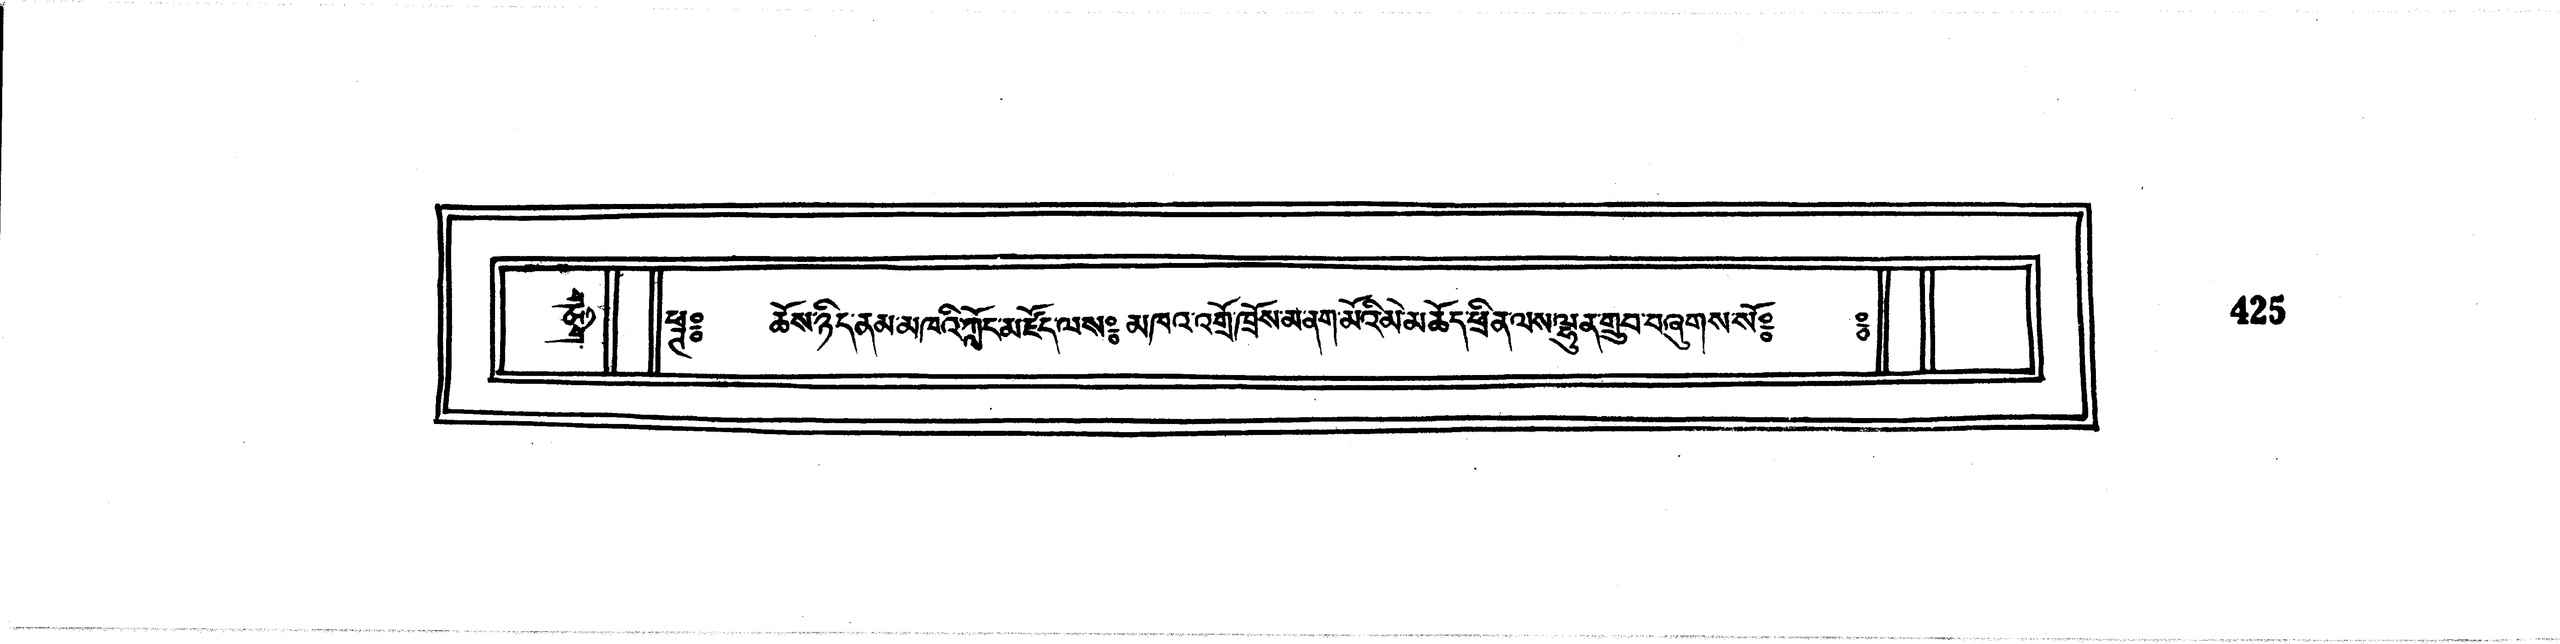 ཕྲ༔ ཆོས་ཉིད་ནམ་མཁའི་ཀློང་མཛོད་ལས༔ མཁའ་འགྲོ་ཁྲོས་མ་ནག་མོའི་མེ་མཆོད་ཕྲིན་ལས་ལྷུན་གྲུབ་བཞུགས་སོ༔ ༔
425